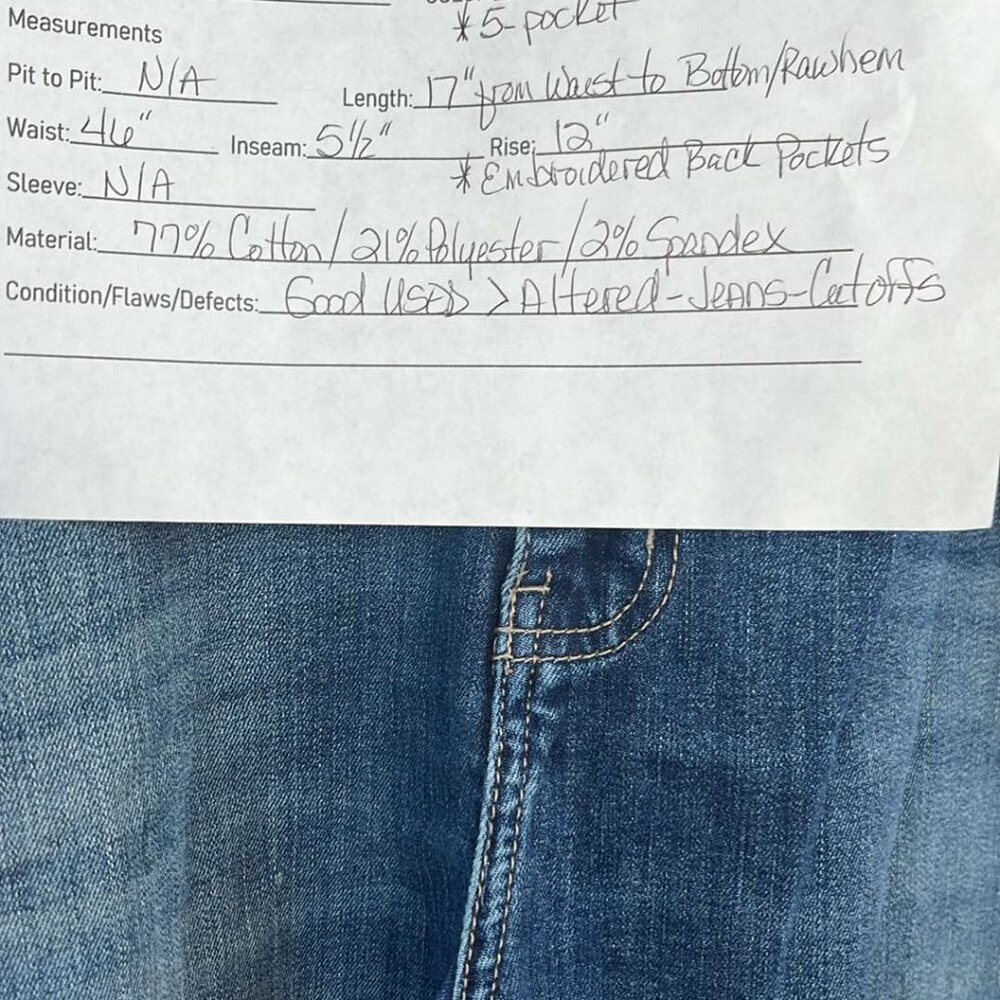 *5-pocket
Measurements
Pit to Pit: N/A
Length: 17" from Waist to Bottom/Rawhem
Waist: 46" Inseam: 5 1/2" Rise: 12"
Sleeve: N/A *Embroidered Back Pockets
Material: 77% Cotton/21% Polyester/2% Spandex
Condition/Flaws/Defects: Good USED > Altered-Jeans-Cutoffs